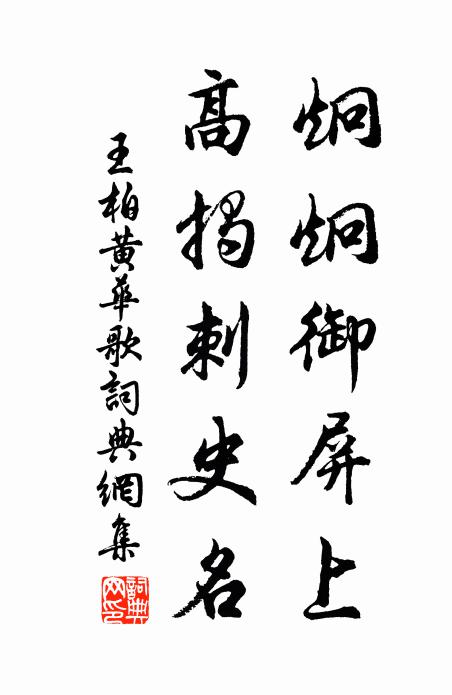 炯炯御屏上
高揭刺史名
王柏黄華歌詞典網集
詞典網印